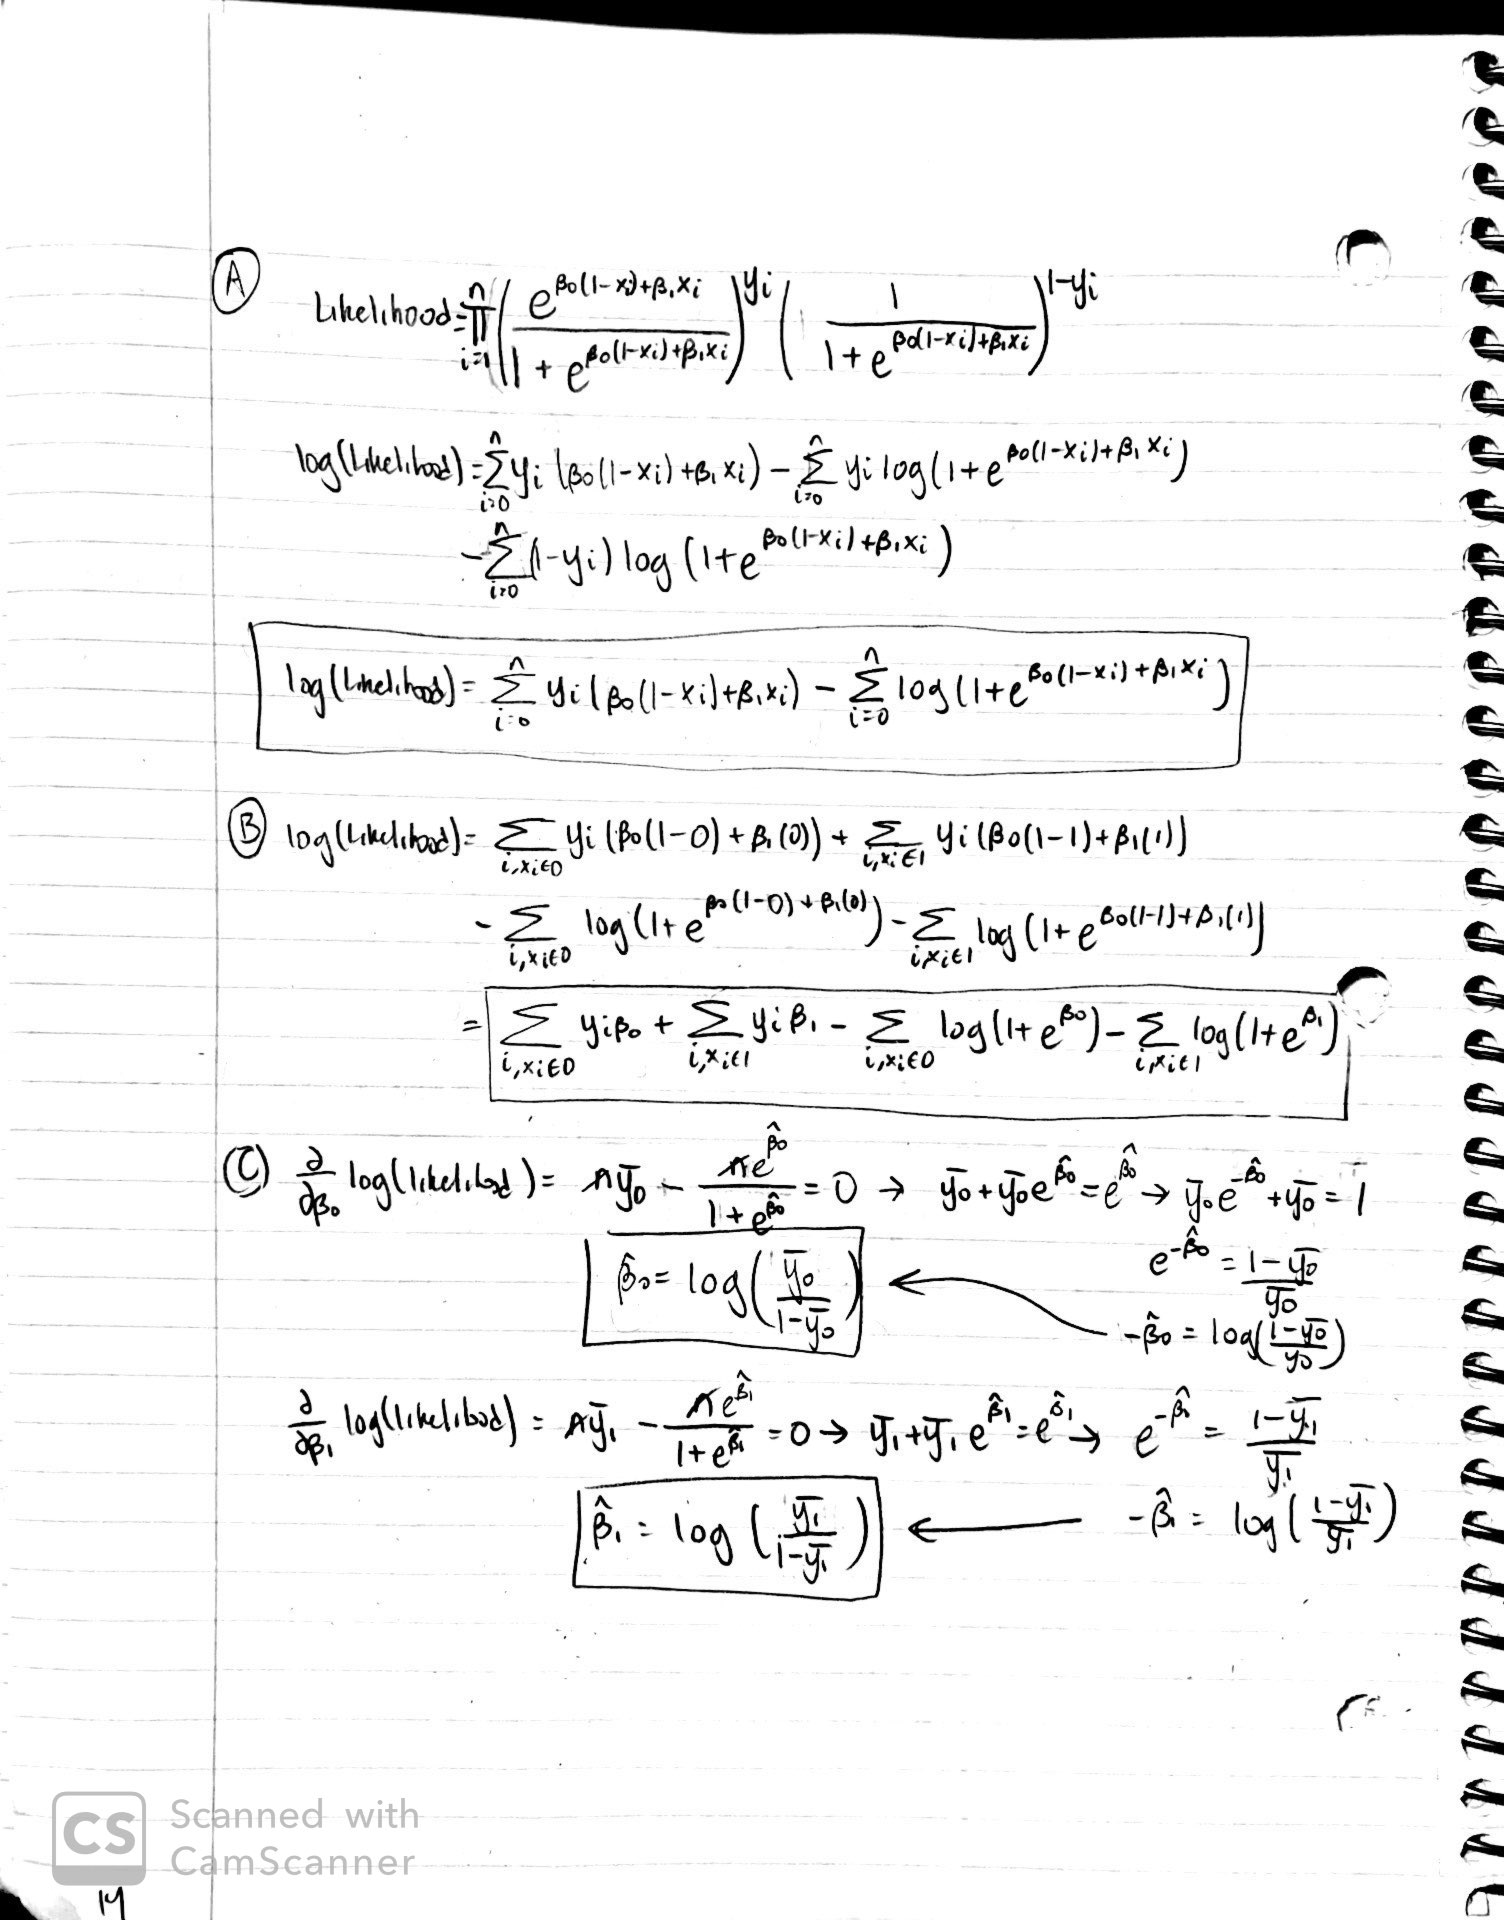 Ⓐ
Likelihood = ∏_{i=1}^{n} (e^{β₀(1-xᵢ)+β₁xᵢ} / (1 + e^{β₀(1-xᵢ)+β₁xᵢ}))^{yᵢ} (1 / (1+e^{β₀(1-xᵢ)+β₁xᵢ}))^{1-yᵢ}
log(Likelihood) = ∑_{i=0}^{n} yᵢ (β₀(1-xᵢ)+β₁xᵢ) - ∑_{i=0}^{n} yᵢ log(1+e^{β₀(1-xᵢ)+β₁xᵢ})
- ∑_{i=0}^{n} (1-yᵢ) log (1+e^{β₀(1-xᵢ)+β₁xᵢ})
log(Likelihood) = ∑_{i=0}^{n} yᵢ(β₀(1-xᵢ)+β₁xᵢ) - ∑_{i=0}^{n} log(1+e^{β₀(1-xᵢ)+β₁xᵢ})
Ⓑ log(Likelihood) = ∑_{i,xᵢ∈0} yᵢ (β₀(1-0)+β₁(0)) + ∑_{i,xᵢ∈1} yᵢ(β₀(1-1)+β₁(1))
- ∑_{i,xᵢ∈0} log(1+e^{β₀(1-0)+β₁(0)}) - ∑_{i,xᵢ∈1} log(1+e^{β₀(1-1)+β₁(1)})
= ∑_{i,xᵢ∈0} yᵢβ₀ + ∑_{i,xᵢ∈1} yᵢβ₁ - ∑_{i,xᵢ∈0} log(1+e^{β₀}) - ∑_{i,xᵢ∈1} log(1+e^{β₁})
Ⓒ ∂/∂β₀ log(likelihood) = nȳ₀ - ne^{β̂₀}/(1+e^{β̂₀}) = 0 → ȳ₀+ȳ₀e^{β̂₀} = e^{β̂₀} → ȳ₀e^{-β̂₀}+ȳ₀ = 1
e^{-β̂₀} = (1-ȳ₀)/ȳ₀
β̂₀ = log(ȳ₀/(1-ȳ₀)) ← -β̂₀ = log((1-ȳ₀)/ȳ₀)
∂/∂β₁ log(likelihood) = nȳ₁ - ne^{β̂₁}/(1+e^{β̂₁}) = 0 → ȳ₁+ȳ₁e^{β̂₁} = e^{β̂₁} → e^{-β̂₁} = (1-ȳ₁)/ȳ₁
β̂₁ = log(ȳ₁/(1-ȳ₁)) ← -β̂₁ = log((1-ȳ₁)/ȳ₁)
CS Scanned with
CamScanner